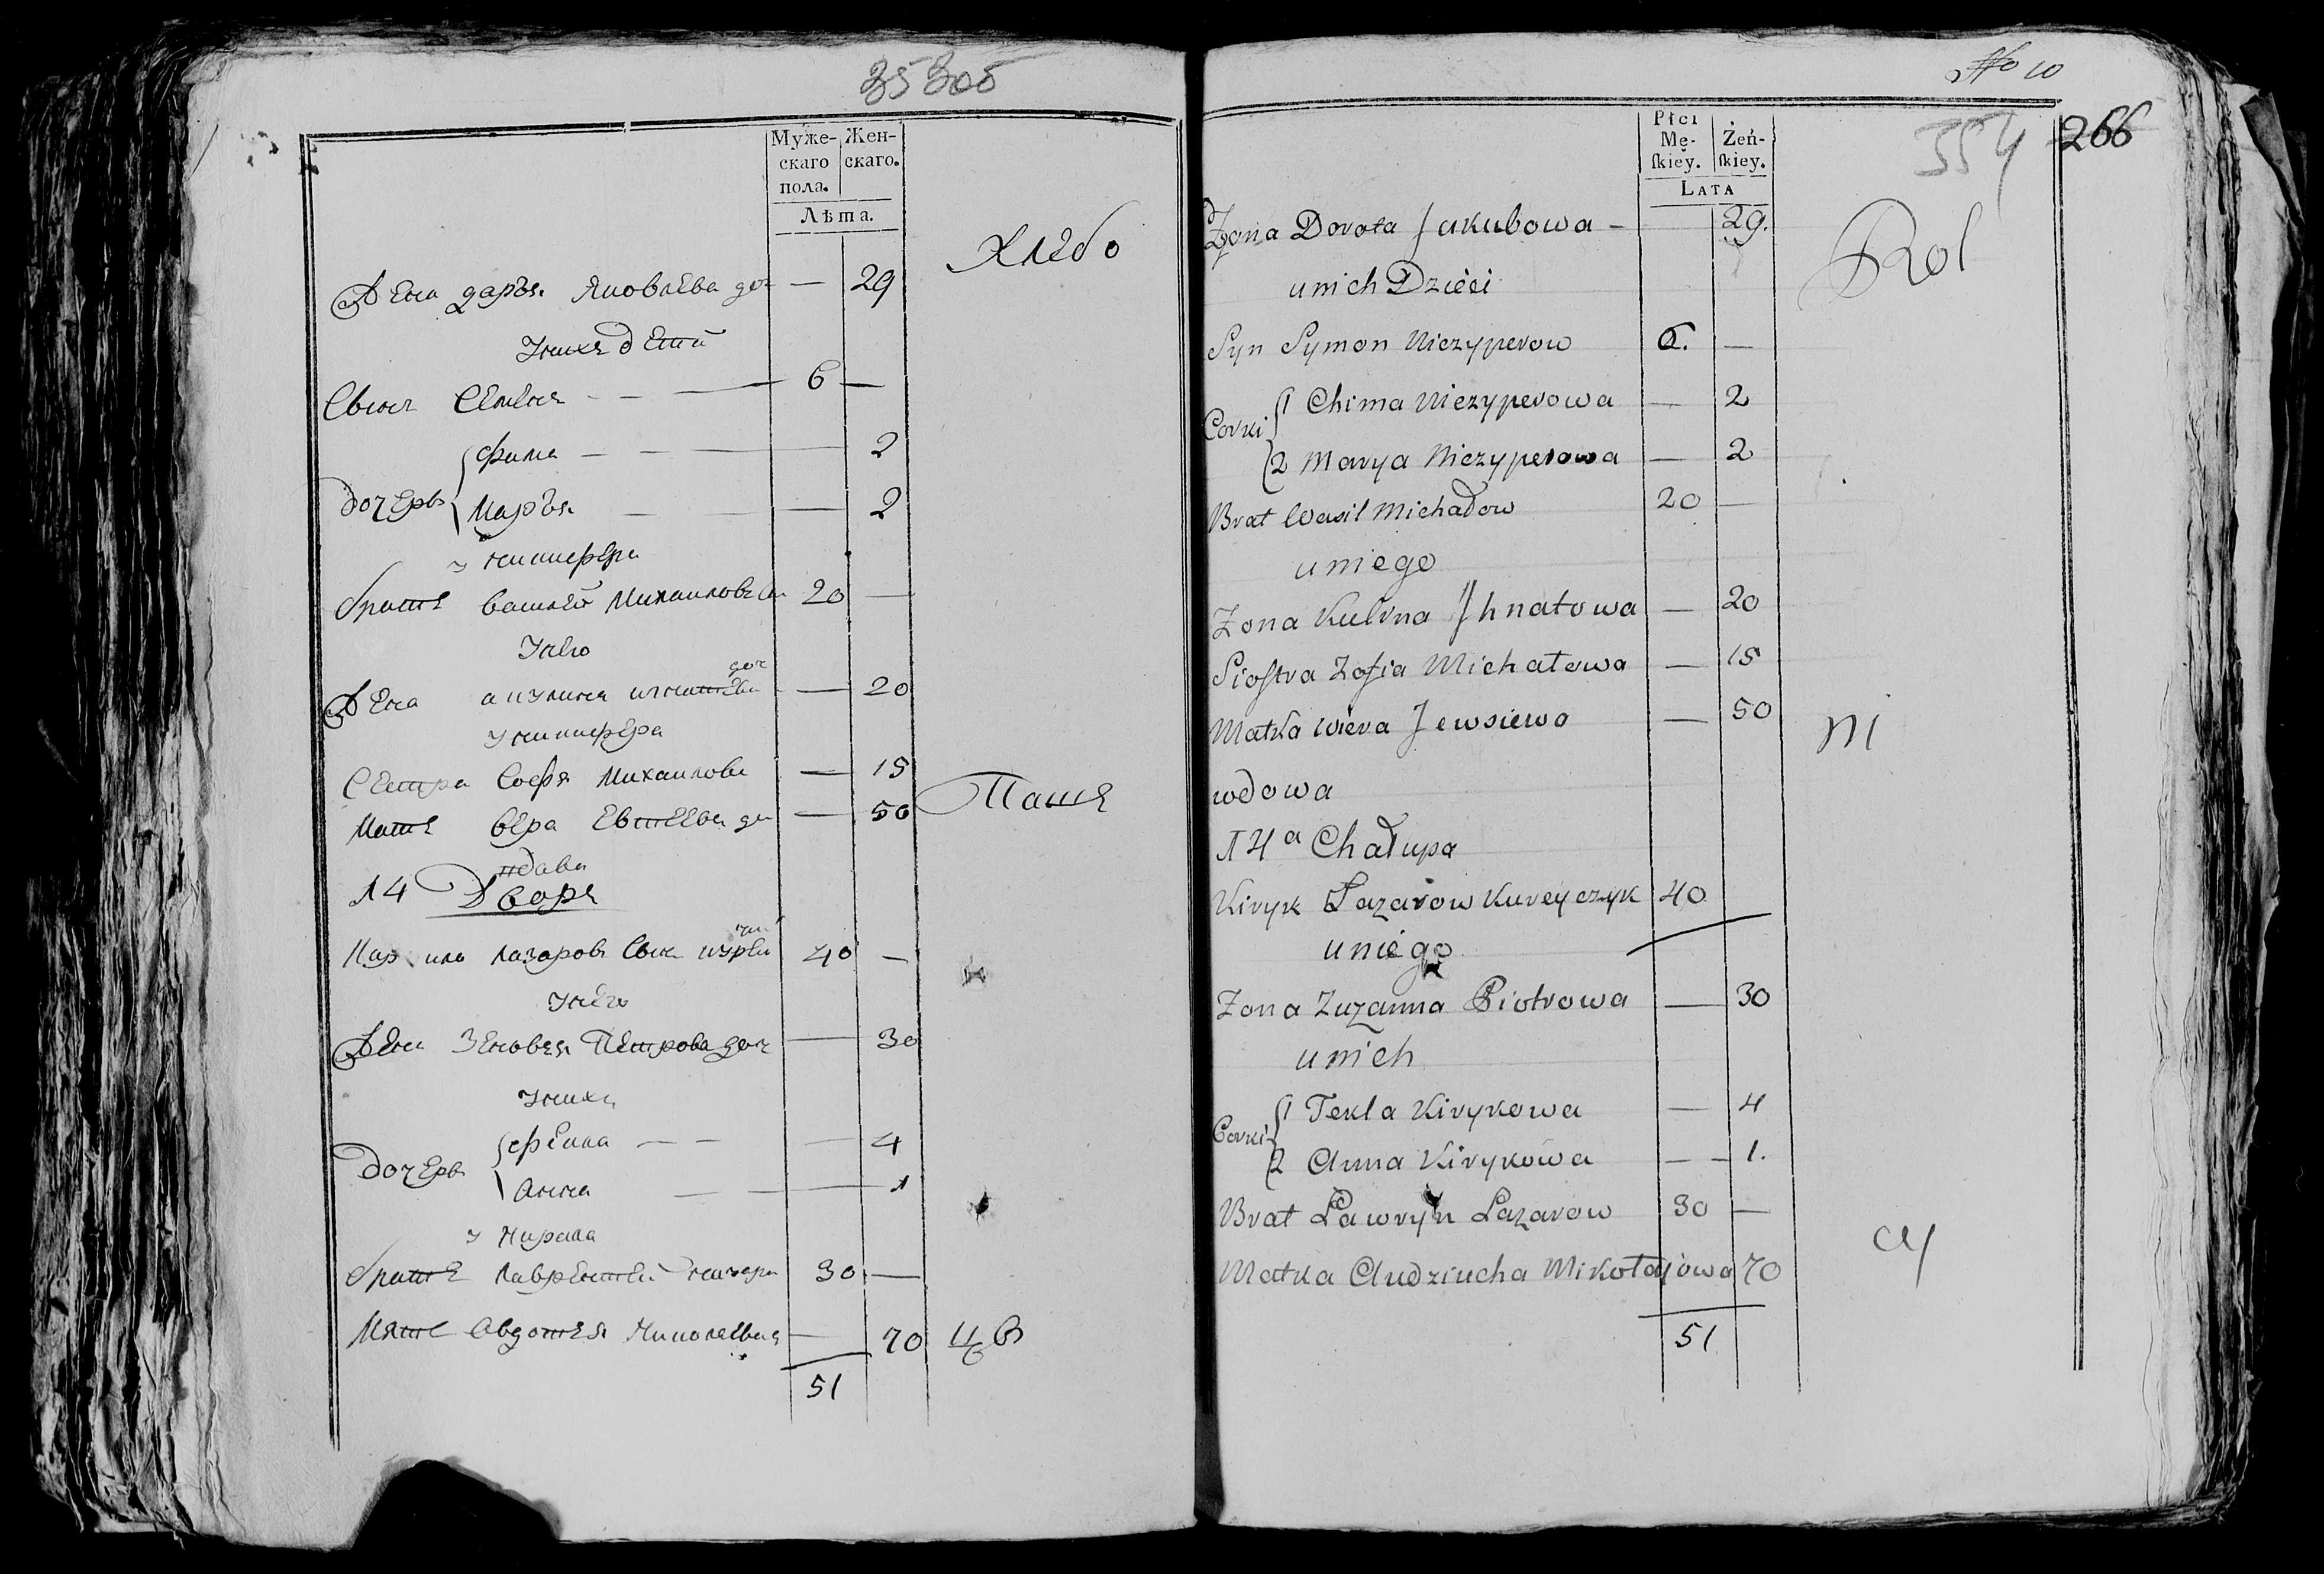 35 305
Муже-
скаго
пола.
Жен-
скаго.
Лѣта.
Хлебо
Жена дарья Яковлева доч — 29
Уних дети
Сынъ Семенъ — 6 —
дочерь
Фима — 2
Марья — 2
У никифера
братъ василей Михаиловъ 20 —
Унево
Жена акулина игнатева доч — 20
У никифера
Сестра Софя Михаилова — 15
Мать вера Евтеева до — 50
Паше
вдова
14 Дворъ
лазаровъ Сынъ 40 —
Унево
Жена Зеновея Петрова доч — 30
Уних
дочерь
Анна — 1
У Кирила
братъ лаврентей 30 —
Мать Авдотея Николаевна — 70
цъ
51
No 10
354
266
Płci
Mę-
skiey.
Żeń-
skiey.
Lata
Zona Dorota Jakubowa — 29.
Rol
unich Dzieci
Syn Symon Niczyperow 6. —
Corki
1 Chima Niczyperowa — 2
2 Marya Niczyperowa — 2
Brat Wasil Michałow 20 —
uniego
Zona Kulina Jhnatowa — 20
Siostra Zofia Michałowa — 15
Matka Wiera Jewsiewa — 50
ni
wdowa
14a Chałupa
Kiryk Łazarow Kureyczyk 40
uniego
Zona Zuzanna Piotrowa — 30
unich
Corki
1 Tekla Kirykowa — 4
2 Anna Kirykowa — 1.
Brat Ławryn Łazarow 30 —
cy
Matka Audziucha Mikołajowa 70
51